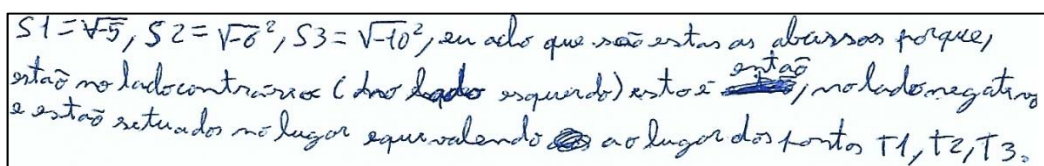 S1 = √-5, S2 = √-6², S3 = √-10², eu acho que são estas as abassas porque,
estão no lado contrário (do lado esquerdo) isto é estão, no lado negativo
e estão setuados no lugar equivalendo ao lugar dos pontos T1, T2, T3.